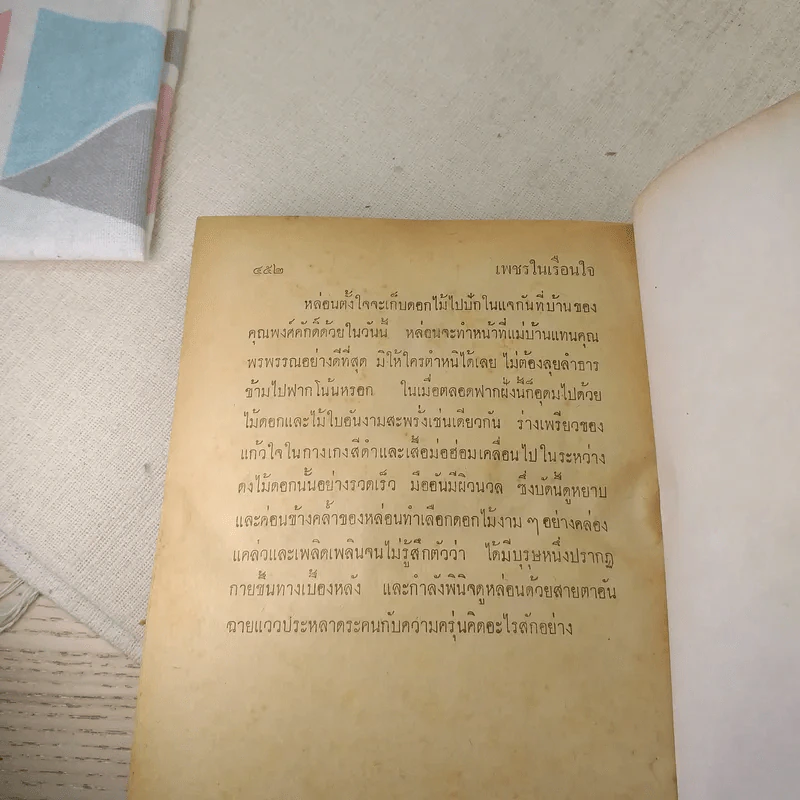 ๔๕๒ เพชรในเรือนใจ
หล่อนตั้งใจจะเก็บดอกไม้ไปปักในแจกันที่บ้านของ
คุณพงศ์ศักดิ์ด้วยในวันนี้ หล่อนจะทำหน้าที่แม่บ้านแทนคุณ
พรพรรณอย่างดีที่สุด มิให้ใครตำหนิได้เลย ไม่ต้องลุยลำธาร
ข้ามไปฟากโน้นหรอก ในเมื่อตลอดฟากฝั่งนี้ก็อุดมไปด้วย
ไม้ดอกและไม้ใบอันงามสะพรั่งเช่นเดียวกัน ร่างเพรียวของ
แก้วใจในกางเกงสีดำและเสื้อม่อฮ่อมเคลื่อนไปในระหว่าง
ดงไม้ดอกนั้นอย่างรวดเร็ว มืออันมีผิวนวล ซึ่งบัดนี้ดูหยาบ
และค่อนข้างคล้ำของหล่อนทำเลือกดอกไม้งาม ๆ อย่างคล่อง
แคล่วและเพลิดเพลินจนไม่รู้สึกตัวว่า ได้มีบุรุษหนึ่งปรากฏ
กายขึ้นทางเบื้องหลัง และกำลังพินิจดูหล่อนด้วยสายตาอัน
ฉายแววประหลาดระคนกับความครุ่นคิดอะไรสักอย่าง